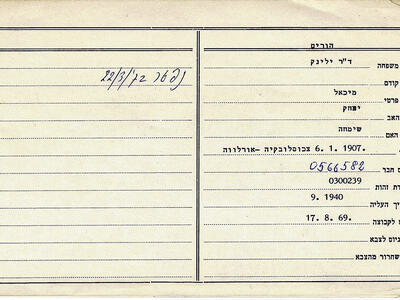 הורים
משפחה ד"ר ילינק
קודם
פרטי מיכאל
האב יצחק
האם שימחה
6. 1. 1907. צכוסלובקיה -אורלווה
חבר 0566582
זהות 0300239
העליה 9. 1940
לקבוצה 17. 8. 69.
גיוס לצבא
שחרור מהצבא
נפטר ב 22/3/